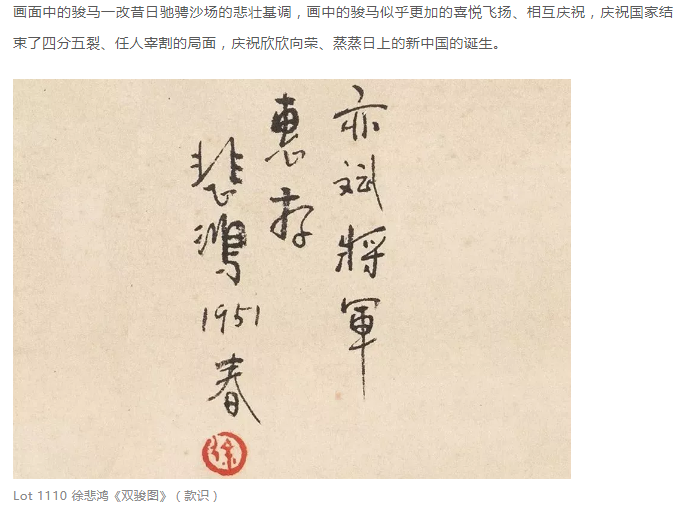 画面中的骏马一改昔日驰骋沙场的悲壮基调，画中的骏马似乎更加的喜悦飞扬、相互庆祝，庆祝国家结
束了四分五裂、任人宰割的局面，庆祝欣欣向荣、蒸蒸日上的新中国的诞生。
亦斌將軍
惠存
悲鴻1951春
徐
Lot 1110 徐悲鸿《双骏图》（款识）